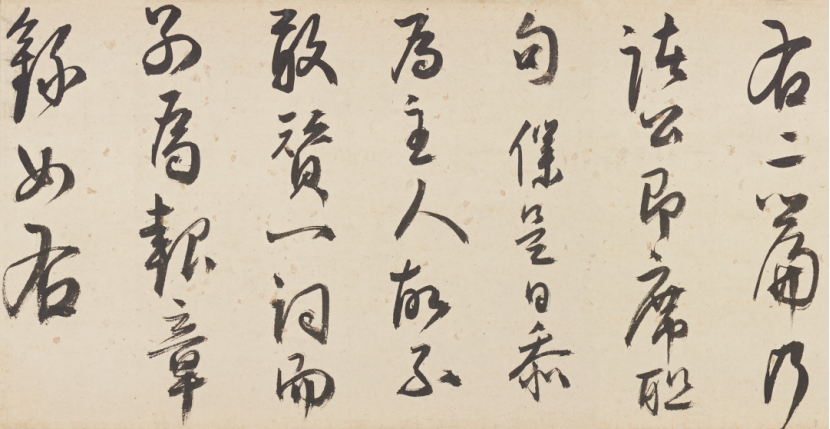 右二篇乃
諸公即席聯
句僕是日忝
為主人故不
敢贊一詞而
別為報章
錄如右